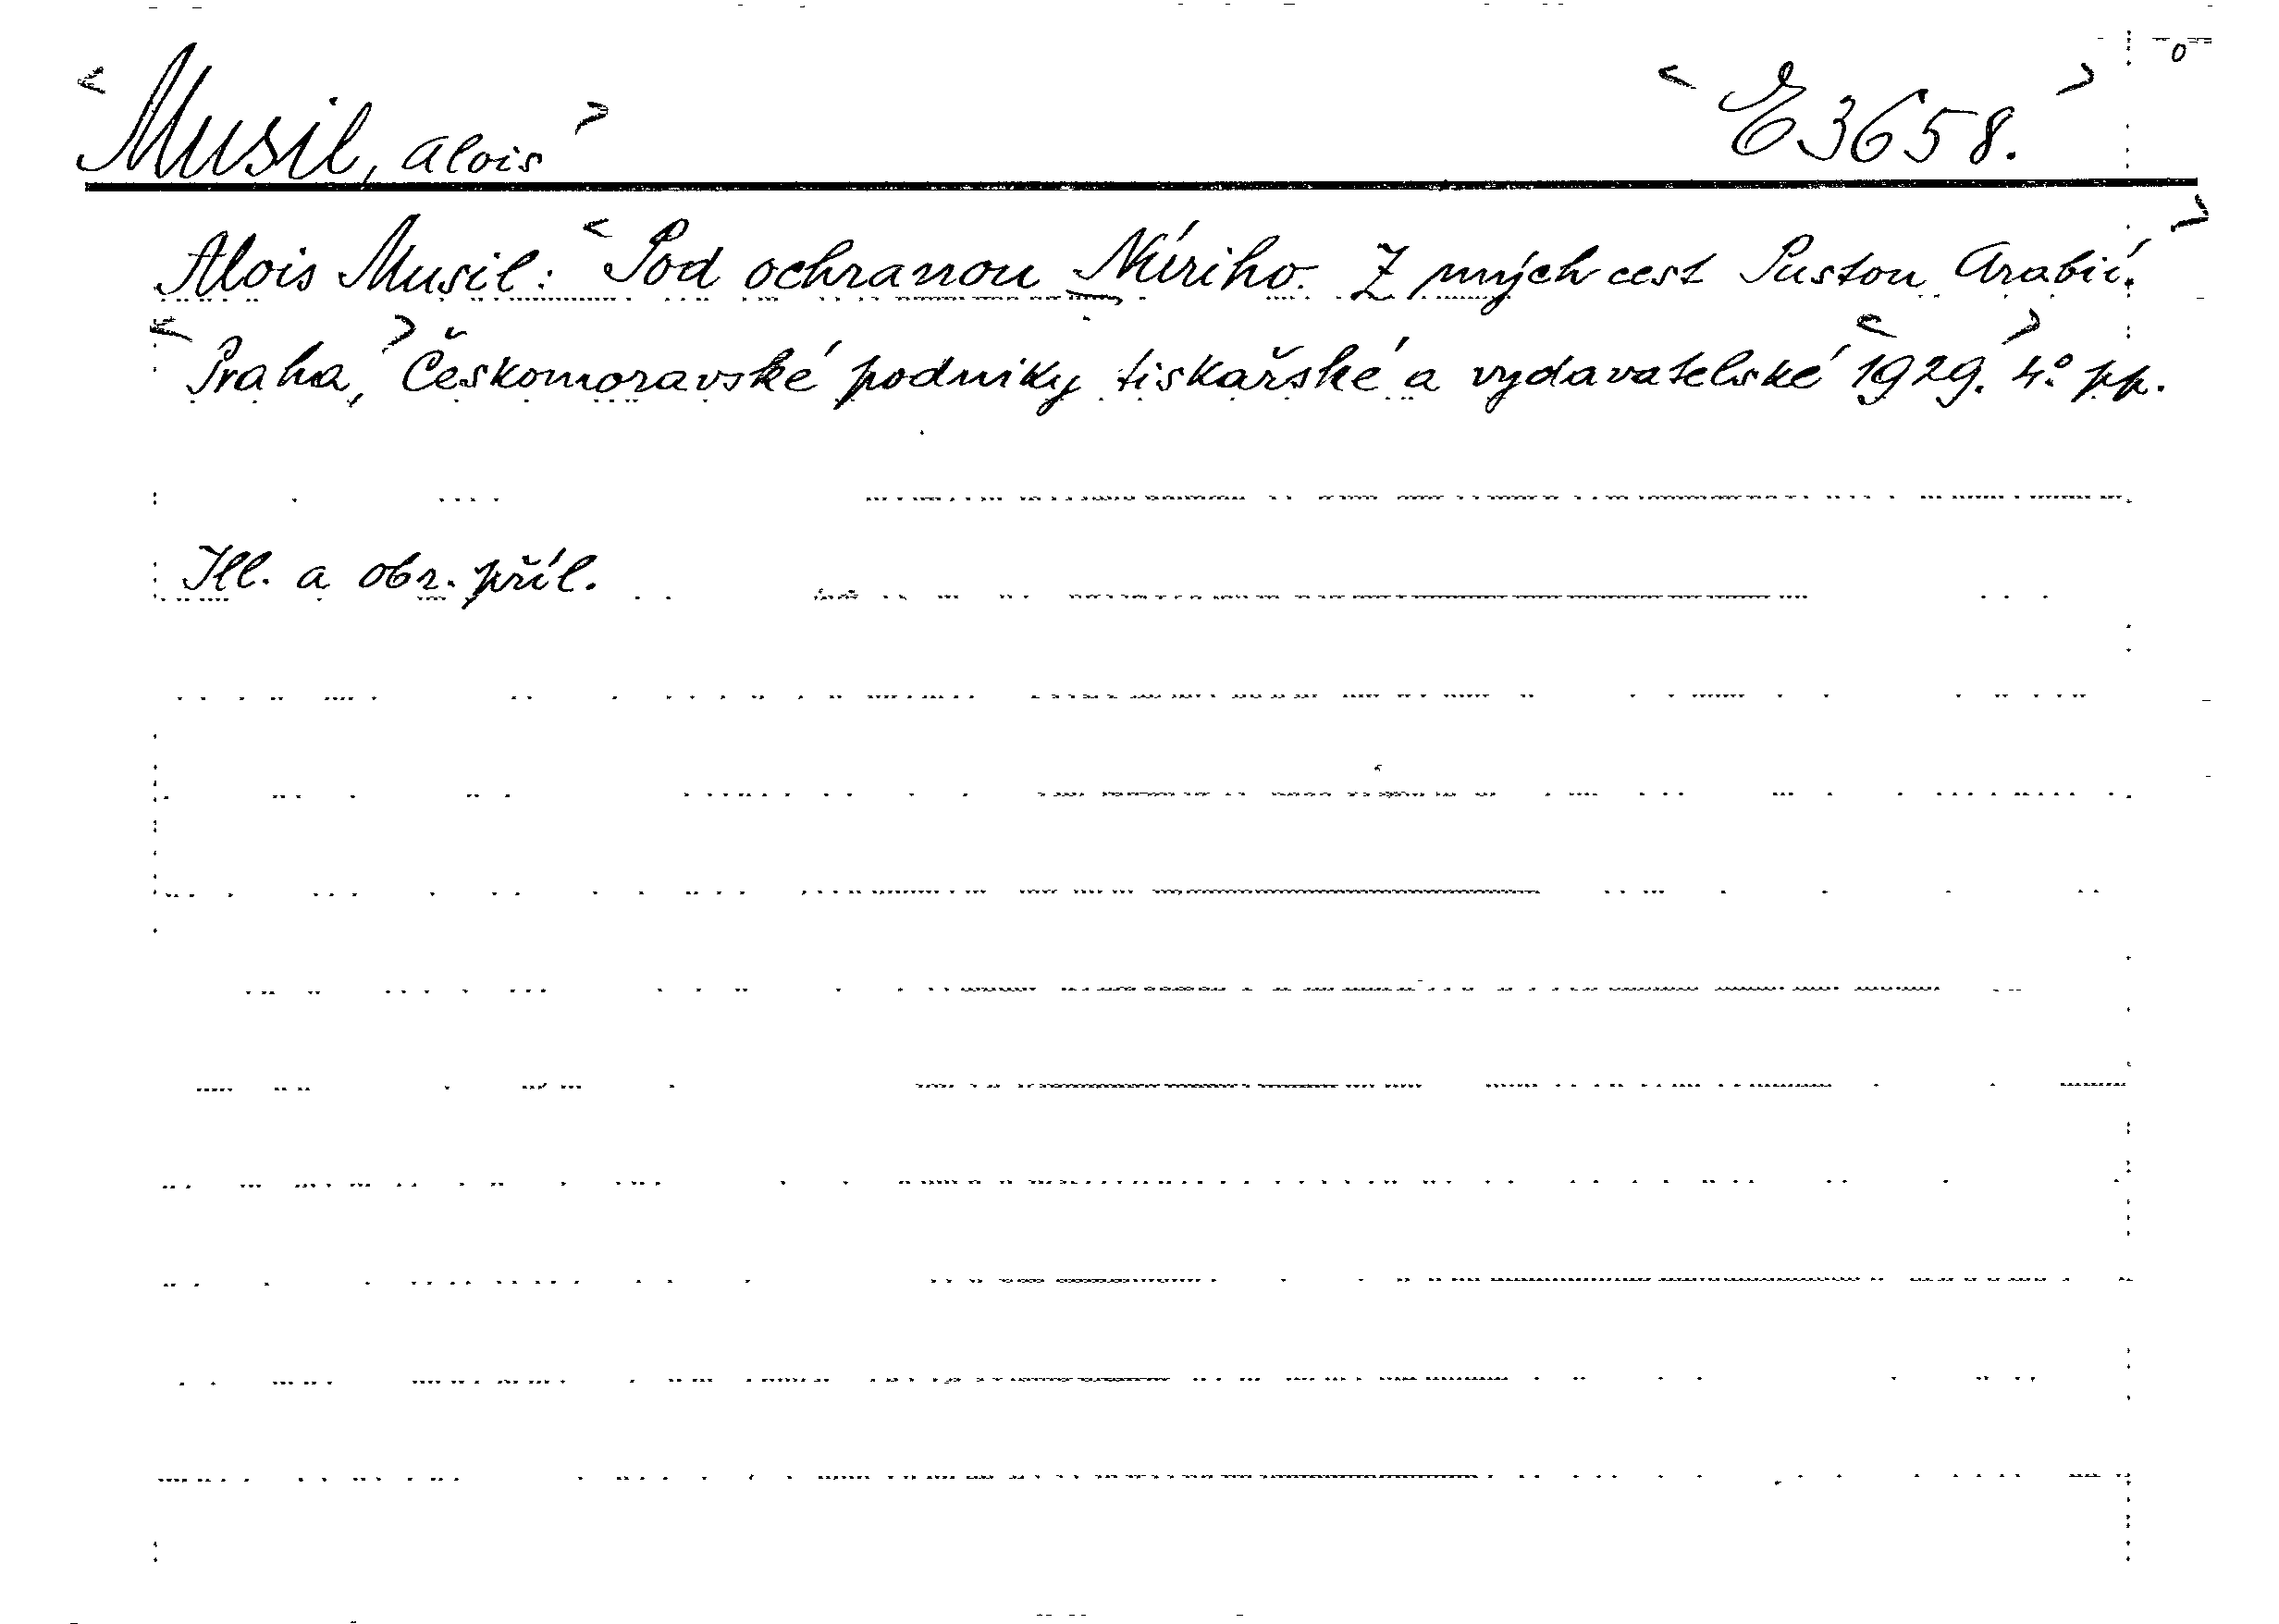 <Musil, Alois> <E 3658.>
Alois Musil: <Pod ochranou Núriho. Z mých cest Pustou Arabií.>
<Praha,> Českomoravské podniky tiskařské a vydavatelské <1929.> 4° pp.
Ill. a obr. příl.